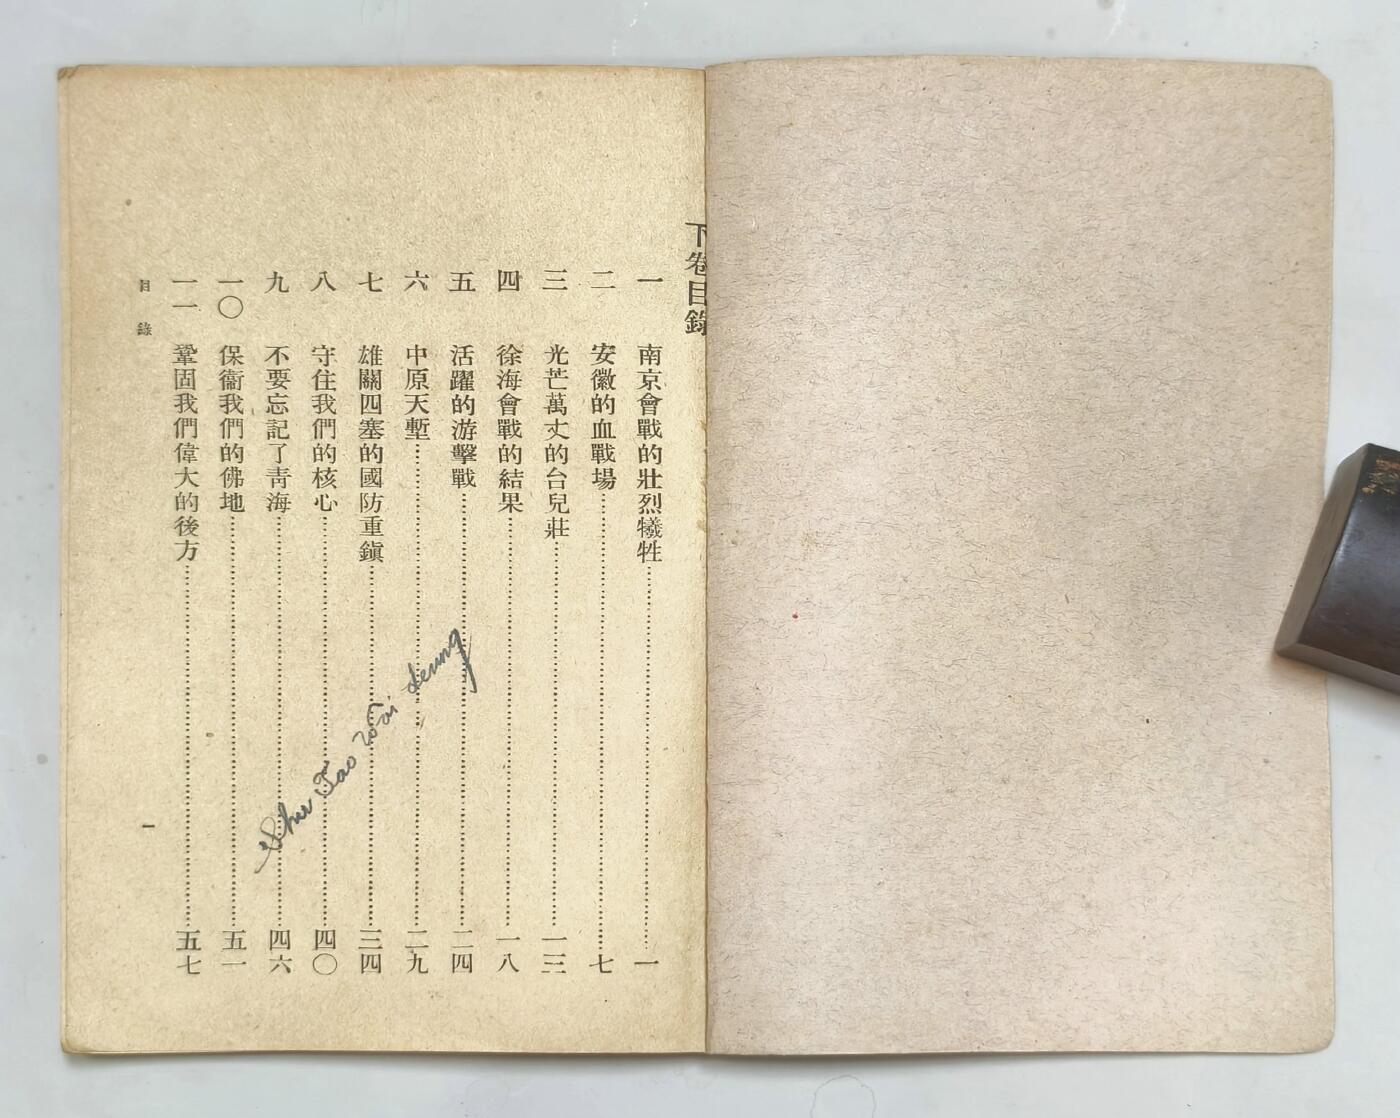 下卷目錄
一 南京會戰的壯烈犧牲……一
二 安徽的血戰場……七
三 光芒萬丈的台兒莊……一三
四 徐海會戰的結果……一八
五 活躍的游擊戰……二四
六 中原天塹……二九
七 雄關四塞的國防重鎭……三四
八 守住我們的核心……四〇
九 不要忘記了靑海……四六
一〇 保衞我們的佛地……五一
一一 鞏固我們偉大的後方……五七
目錄
一
Tao